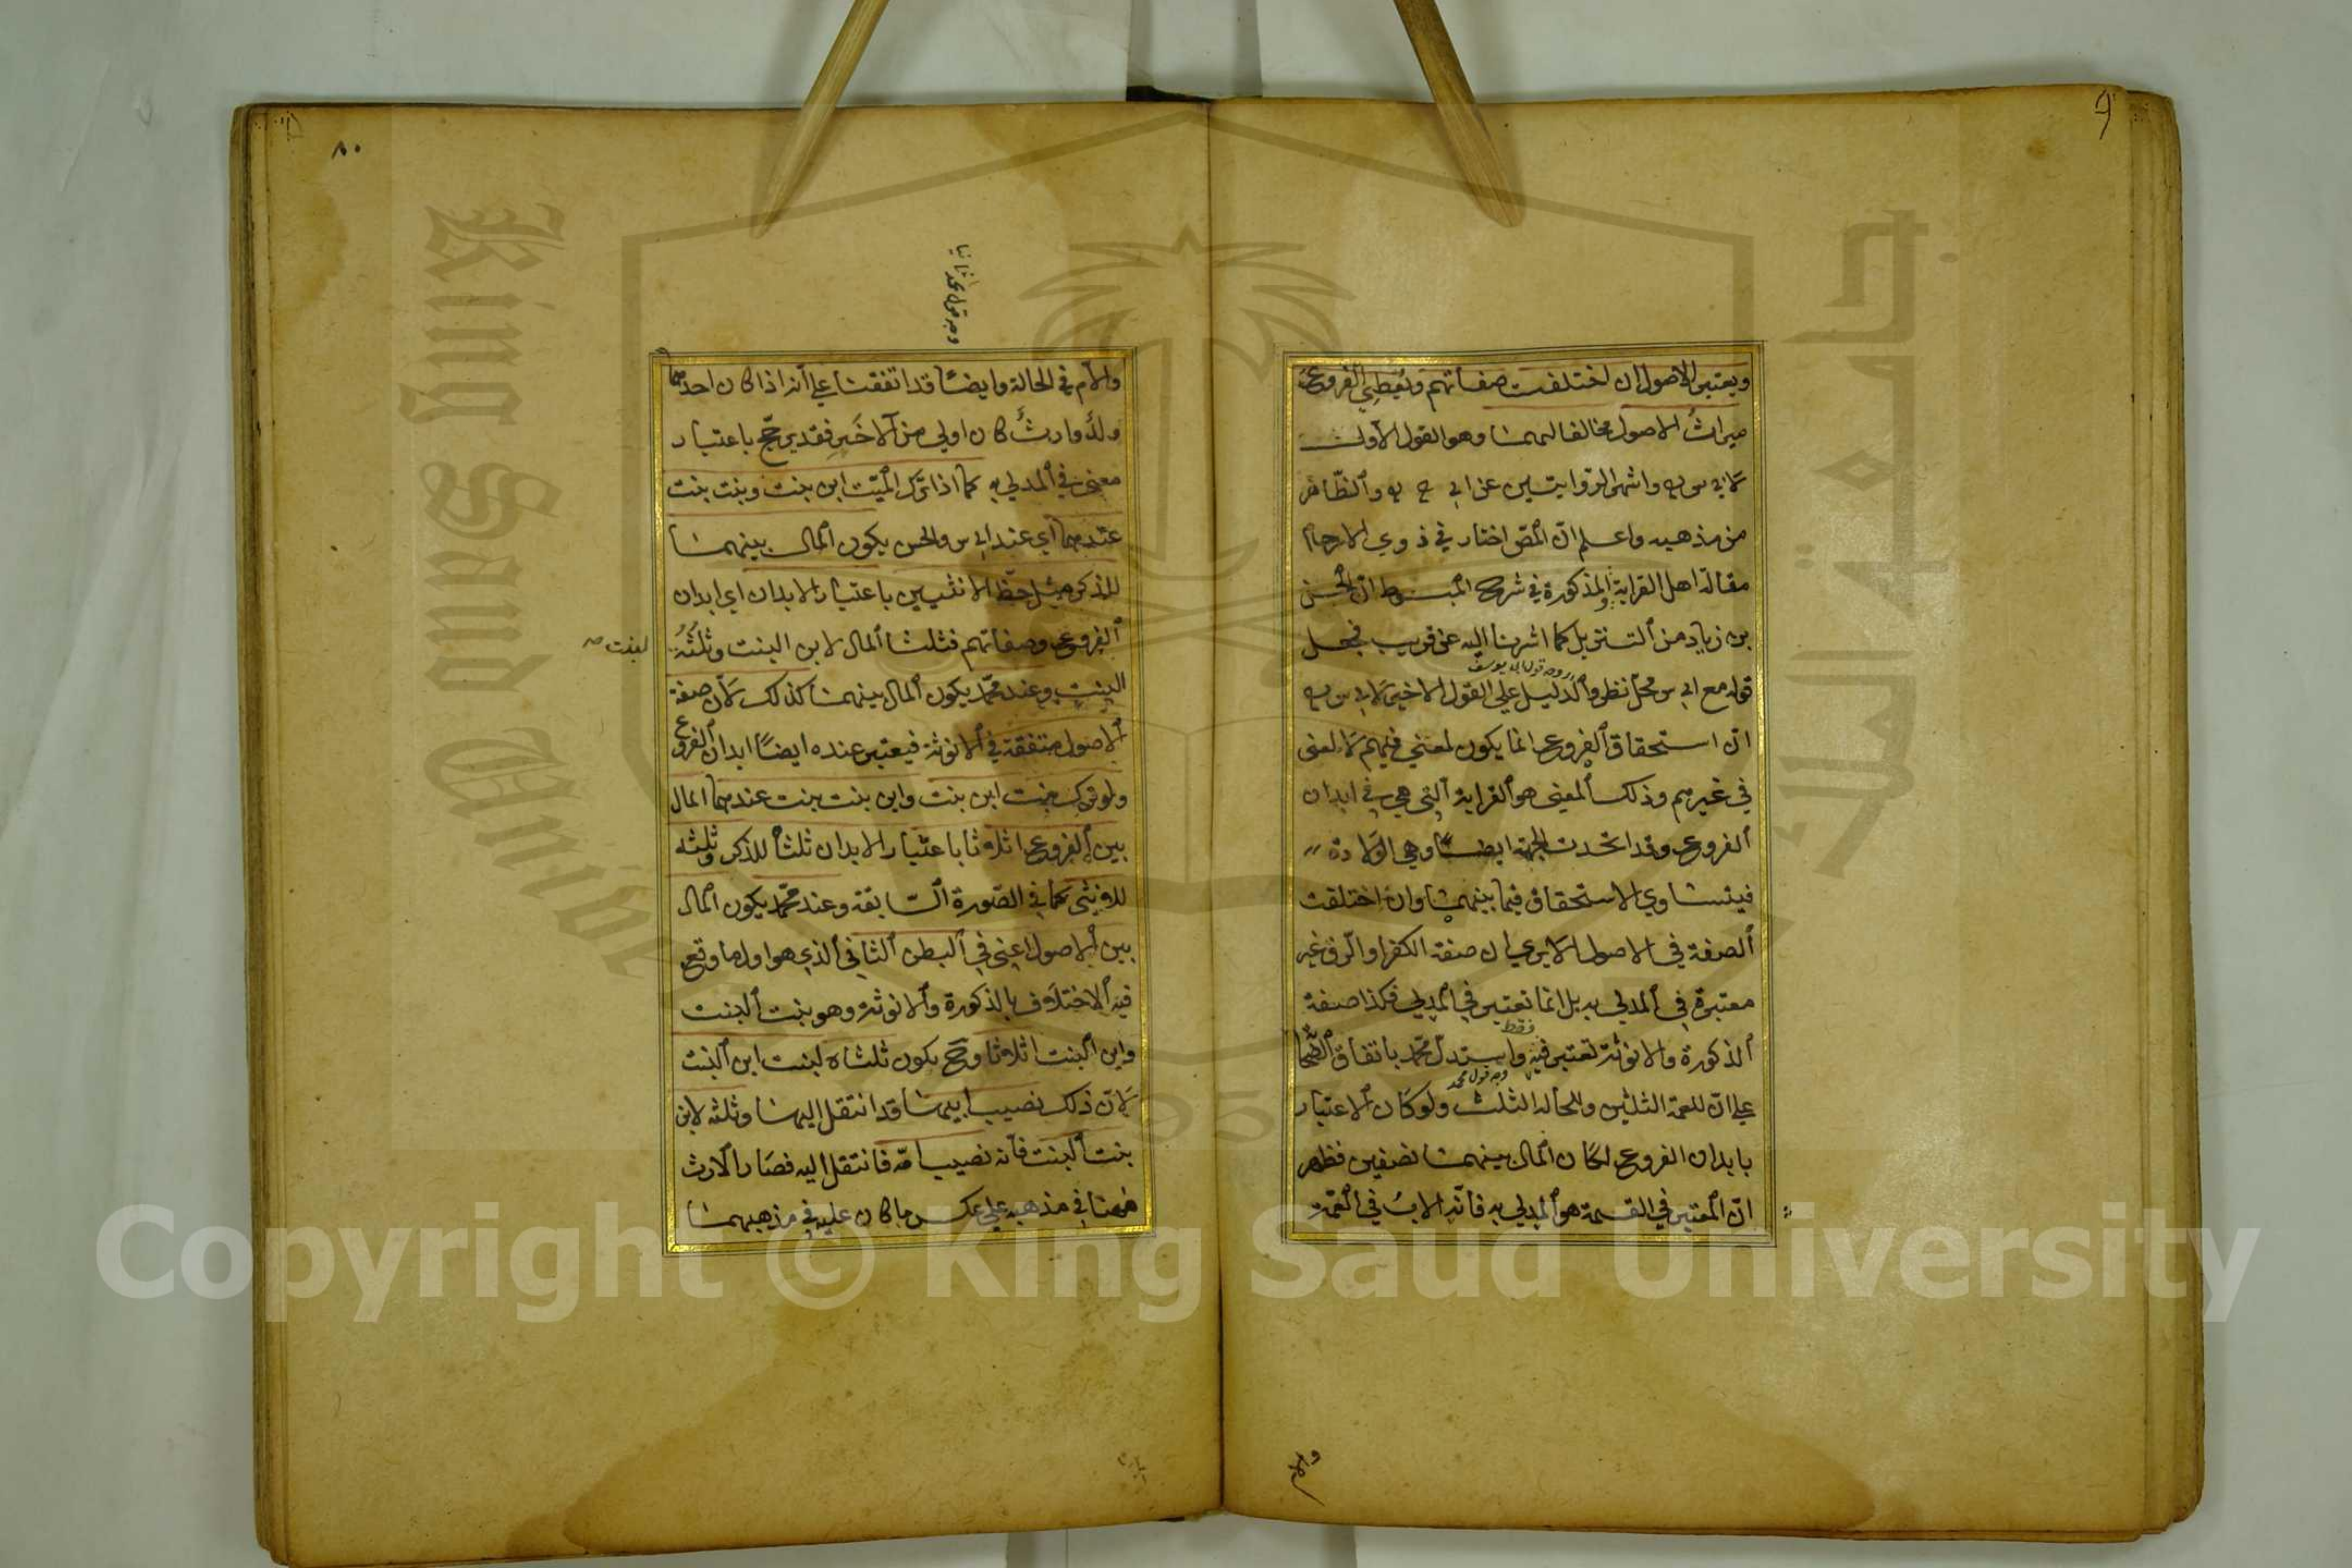 ويعتبر الاصول ان اختلفت صفاتهم ويعطي الفروع
ميراث الاصول مخالفا لهما وهو القول الاول
لابي س وهو اشهر الروايتين عن ابي ح والظاهر
من مذهبه واعلم ان المص اختار في ذوي الارحام
مقالة اهل القرابة والمذكورة في شرح المبسوط ان الحسن
بن زياد من التنزيل كما اشرنا اليه عن قريب فجعل
وجه قول ابي يوسف
قوله مع ابي س محل نظر والدليل على القول الاخير لابي س
ان استحقاق الفروع انما يكون لمعنى فيهم لا لمعنى
في غيرهم وذلك المعنى هو القرابة التي هي في ابدان
الفروع وقد اتحدت الجهة ايضا وهي الولادة
فيتساوي الاستحقاق فيما بينهما وان اختلفت
الصفة في الاصول الا يرى ان صفة الكفر او الرق غير
معتبرة في المدلي به بل انما تعتبر في المدلي فكذا صفة
فقط
الذكورة والانوثة تعتبر فيه واستدل محمد باتفاق الصحا
وجه قول محمد
على ان للعمة الثلثين وللخالة الثلث ولو كان الاعتبار
بابدان الفروع لكان المال بينهما نصفين فظهر
ان المعتبر في القسمة هو المدلي به فانه الاب في العمة
٨٠
وجه قول محمد ثانيا
والام في الخالة وايضا قد اتفقنا على انه اذا كان احدهما
ولد وارث كان اولى من الاخر فقد يرجح باعتبار
معنى في المدلي به كما اذا ترك الميت ابن بنت وبنت بنت
عندهما اي عند ابي س والحسن يكون المال بينهما
للذكر مثل حظ الانثيين باعتبار الابدان اي ابدان
الفروع وصفاتهم فثلثا المال لابن البنت وثلثه
لبنت صح
البنت وعند محمد يكون المال بينهما كذلك لان صفة
الاصول متفقة في الانوثة فيعتبر عنده ايضا ابدان الفروع
ولو ترك بنت ابن بنت وابن بنت بنت عندهما المال
بين الفروع اثلاثا باعتبار الابدان ثلثا للذكر وثلثه
للانثى كما في الصورة السابقة وعند محمد يكون المال
بين الاصول اعني في البطن الثاني الذي هو اول ما وقع
فيه الاختلاف بالذكورة والانوثة وهو بنت البنت
وابن البنت اثلاثا وح يكون ثلثاه لبنت ابن البنت
لان ذلك نصيب ابيها قد انتقل اليها وثلثه لابن
بنت البنت فانه نصيب امه فانتقل اليه فصار الارث
ههنا في مذهبه على عكس ما كان عليه في مذهبهما
King Saud
Copyright © King Saud University